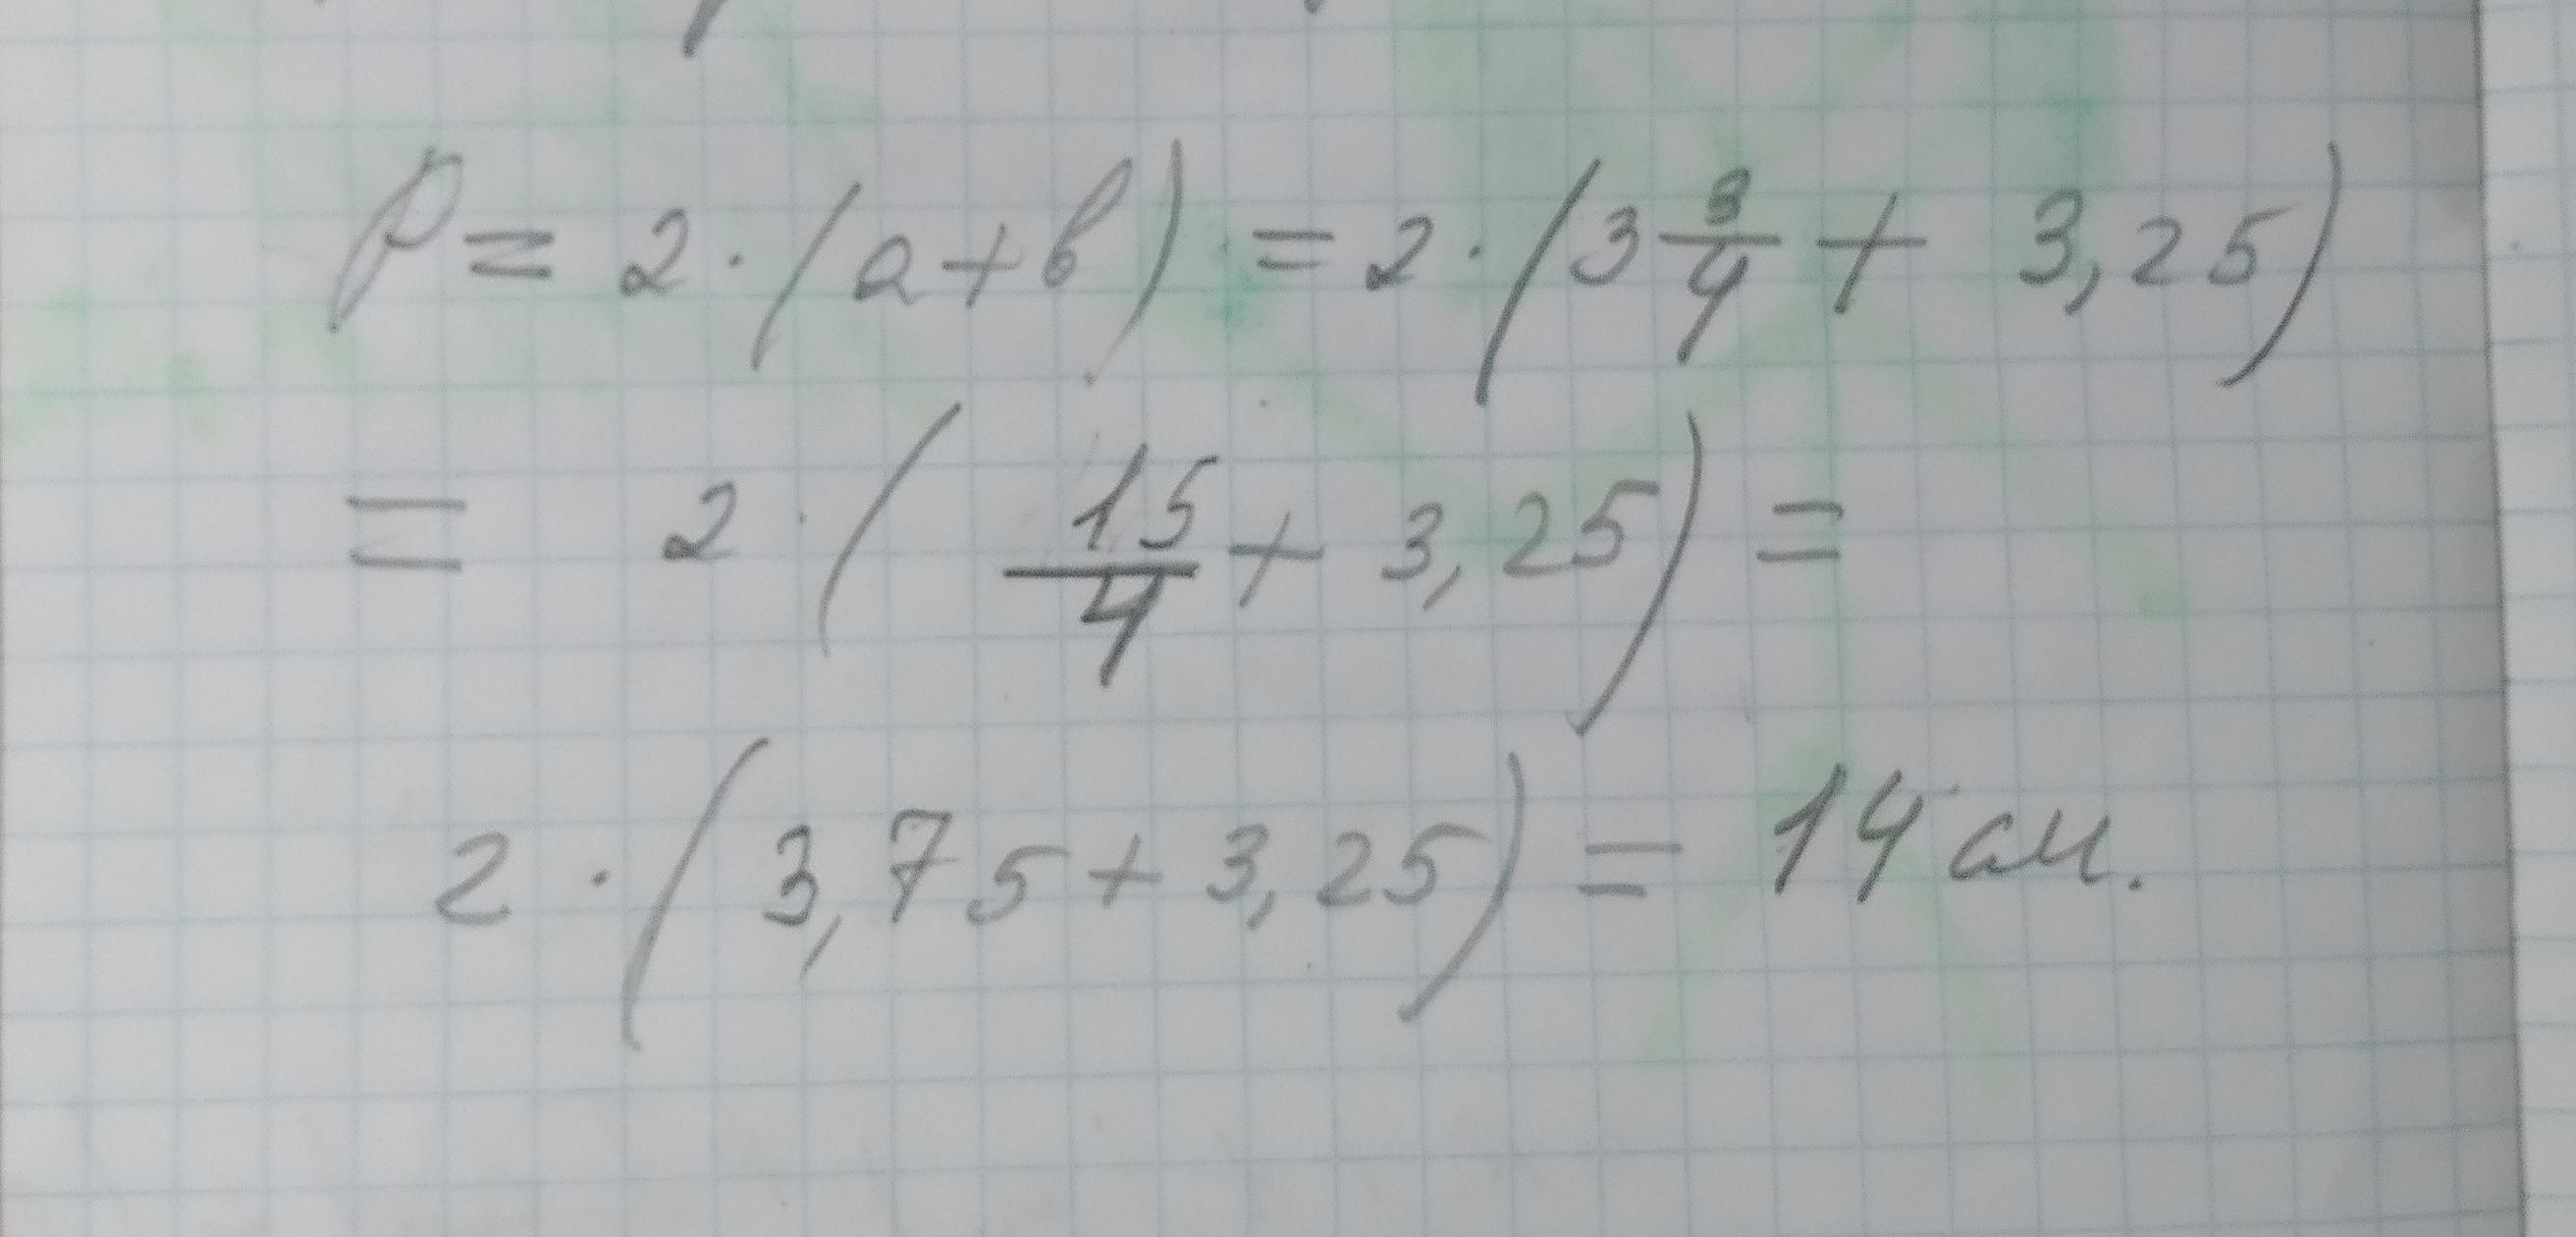 P = 2 · (a + b) = 2 · (3 3/4 + 3,25)
= 2 · (15/4 + 3,25) =
2 · (3,75 + 3,25) = 14 см.